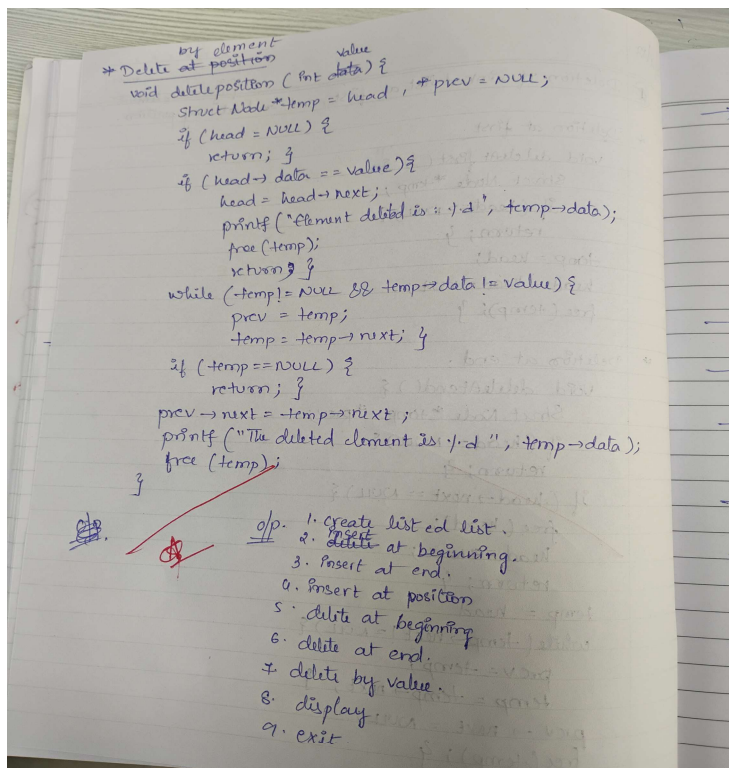 by element
* Delete at position value
void deleteposition (int data) {
struct Node *temp = head, *prev = NULL;
if (head = NULL) {
return; }
if (head → data == value) {
head = head → next;
printf ("Element deleted is : %d", temp→data);
free (temp);
return; }
while (temp != NULL && temp→data != value) {
prev = temp;
temp = temp → next; }
if (temp == NULL) {
return; }
prev → next = temp → next ;
printf ("The deleted element is %d ", temp→data);
free (temp);
}
o/p. 1. create listed list.
insert
2. delete at beginning.
3. insert at end.
4. insert at position
5. delete at beginning
6. delete at end.
7. delete by value.
8. display
9. exit